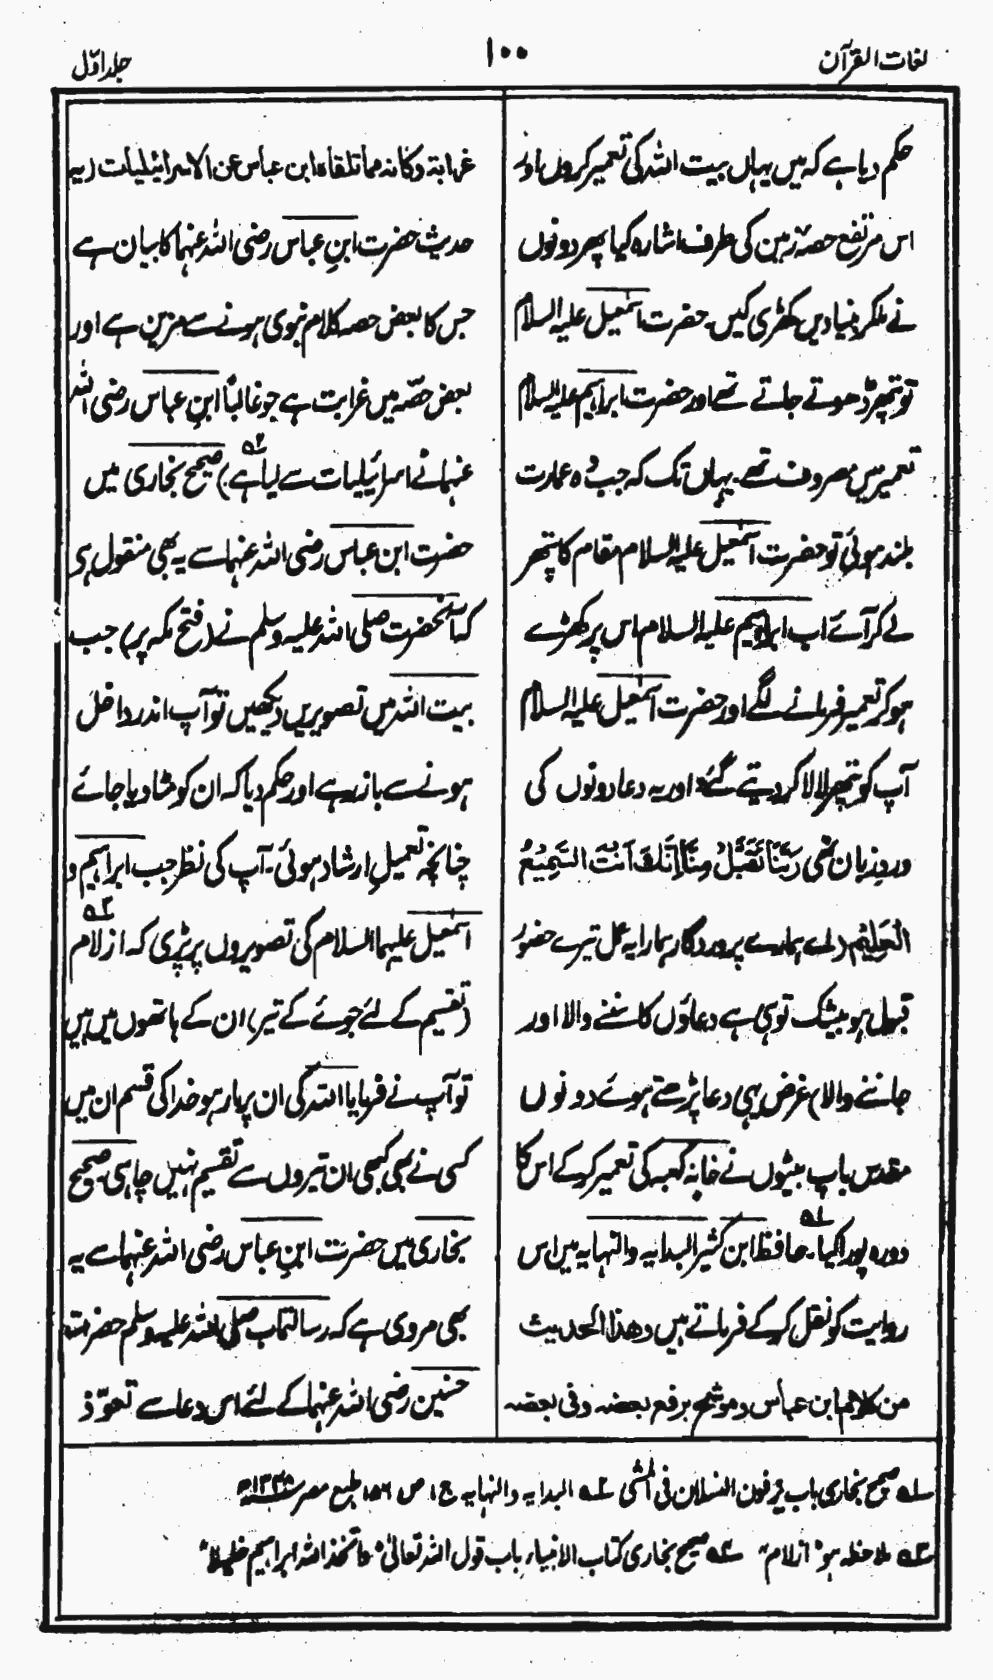 لغات القرآن
۱۰۰
جلد اوّل
حکم دیا ہے کہ میں یہاں بیت اللہ کی تعمیر کروں اور
اس مرتفع حصہ زمین کی طرف اشارہ کیا پھر دونوں
نے ملکر بنیادیں کھڑی کیں۔ حضرت اسمٰعیل علیہ السلام
تو پتھر ڈھوتے جاتے تھے اور حضرت ابراہیم علیہ السلام
تعمیر میں مصروف تھے۔ یہاں تک کہ جب وہ عمارت
بلند ہوئی تو حضرت اسمٰعیل علیہ السلام مقام کا پتھر
لے کر آئے اب ابراہیم علیہ السلام اس پر کھڑے
ہو کر تعمیر فرمانے لگے اور حضرت اسمٰعیل علیہ السلام
آپ کو پتھر لا لا کر دیتے گئے اور یہ دعا دونوں کی
ورد زبان تھی رَبَّنَا تَقَبَّلْ مِنَّا إِنَّكَ أَنْتَ السَّمِيْعُ
الْعَلِيْمُ (اے ہمارے پروردگار ہمارا یہ عمل تیرے حضور
قبول ہو بیشک تو ہی ہے دعاؤں کا سننے والا اور
جاننے والا) غرض یہی دعا پڑھتے ہوئے دونوں
مقدس باپ بیٹوں نے خانہ کعبہ کی تعمیر کر کے اس کا
دورہ پورا کیا۔ ؎۱ حافظ ابن کثیر البدایہ والنہایہ میں اس
روایت کو نقل کر کے فرماتے ہیں وهذا الحديث
من كلام ابن عباس وموشح برفع بعضه وفى بعضه
غرابة وكانه مما تلقاه ابن عباس عن الاسرائيليات (یہ
حدیث حضرت ابنِ عباس رضی اللہ عنہما کا بیان ہے
جس کا بعض حصہ کلام نبوی ہونے سے مزین ہے اور
بعض حصّہ میں غرابت ہے جو غالباً ابنِ عباس رضی اللہ
عنہما نے اسرائیلیات سے لیا ہے) ؎۲ صحیح بخاری میں
حضرت ابن عباس رضی اللہ عنہما سے یہ بھی منقول ہے
کہ آنحضرت صلی اللہ علیہ وسلم نے (فتح مکہ پر) جب
بیت اللہ میں تصویریں دیکھیں تو آپ اندر داخل
ہونے سے باز رہے اور حکم دیا کہ ان کو مٹا دیا جائے
چنانچہ تعمیل ارشاد ہوئی۔ آپ کی نظر جب ابراہیم و
اسمٰعیل علیہما السلام کی تصویروں پر پڑی کہ ازلام ؎۳
(تقسیم کے لئے جوئے کے تیر) ان کے ہاتھوں میں ہیں
تو آپ نے فرمایا اللہ کی ان پر مار ہو خدا کی قسم ان میں
کسی نے بھی کبھی ان تیروں سے تقسیم نہیں چاہی۔ صحیح
بخاری میں حضرت ابنِ عباس رضی اللہ عنہما سے یہ
بھی مروی ہے کہ رسالتمآب صلی اللہ علیہ وسلم حضرت
حسنین رضی اللہ عنہما کے لئے اس دعا سے تعوّذ
؎۱ صحیح بخاری باب یزفون النسلان فی المشی ؎۲ البدایہ والنہایہ ج ۱ ص ۱۵۶ طبع مصر
؎۳ ملاحظہ ہو "ازلام" ؎۴ صحیح بخاری کتاب الانبیاء باب قول اللہ تعالیٰ "واتخذ اللہ ابراہیم خلیلا"